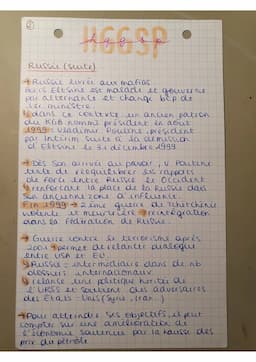 ②
HGGSP
Russie (suite)
→ Russie livrée aux mafias
Boris Eltsine est malade et gouverne
par alternance et change bcp de
1er ministre.
↳ dans ce contexte un ancien patron
du KGB nommé président en août
1999 : Vladimir Poutine, président
par intérim suite à la démission
d'Eltsine le 31 décembre 1999
→ Dès son arrivée au pouvoir, V. Poutine
tente de rééquilibrer les rapports
de force entre Russie et Occident
↳ renforcer la place de la Russie dans
son ancienne zone d'influence
Fin 1999 → 2ème guerre de Tchétchénie
violente et meurtrière → réintégration
dans la Fédération de Russie.
→ Guerre contre le terrorisme après
2001 → permet de relancer dialogue
entre USA et EU
↳ Russie = intermédiaire dans nb
dossiers internationaux
↳ relance une politique héritée de
l'URSS et soutient des adversaires
des Etats-Unis (Syrie, Iran)
→ Pour atteindre ses objectifs, il peut
compter sur une amélioration de
l'économie soutenue par la hausse des
prix du pétrole